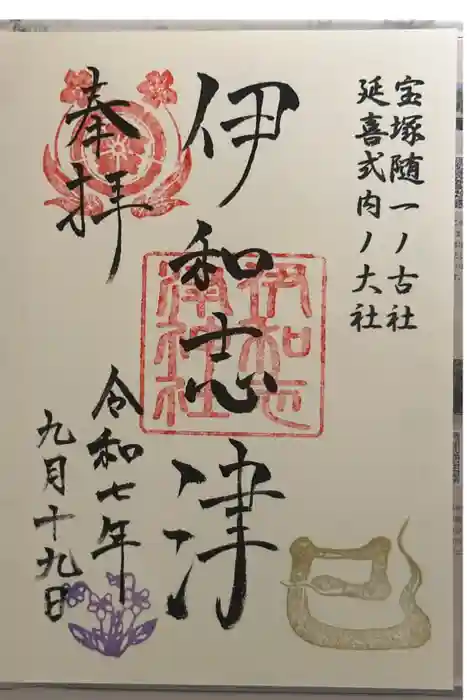 宝塚随一ノ古社
延喜式内ノ大社
伊和志津
伊和志津神社
奉拝
令和七年
九月十九日
巳